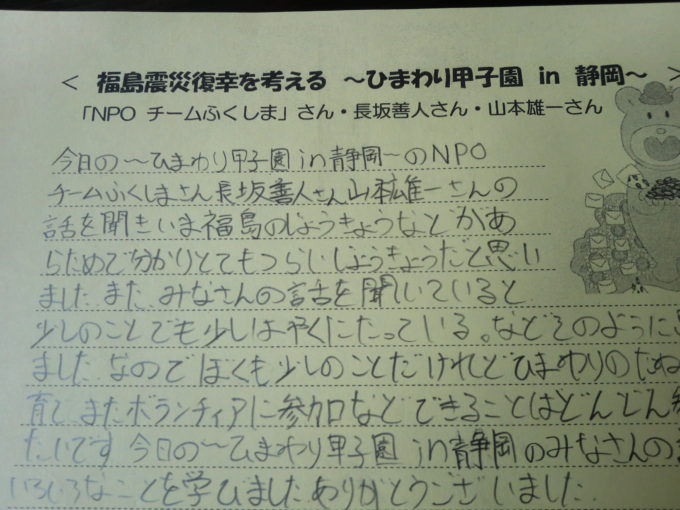 < 福島震災復幸を考える ～ひまわり甲子園 in 静岡～ >
「NPO チームふくしま」さん・長坂善人さん・山本雄一さん
今日の～ひまわり甲子園in静岡～のNPO
チームふくしまさん長坂善人さん山本雄一さんの
話を聞きいま福島のじょうきょうなどがあ
らためて分かりとてもつらいじょうきょうだと思い
ました。また、みなさんの話を聞いていると
少しのことでも少しはやくにたっている。などそのように
ました。なのでぼくも少しのことだけれどひまわりのたね
育て、またボランティアに参加などできることはどんどん参
たいです。今日の～ひまわり甲子園in静岡のみなさんの
いろいろなことを学びました。ありがとうございました。